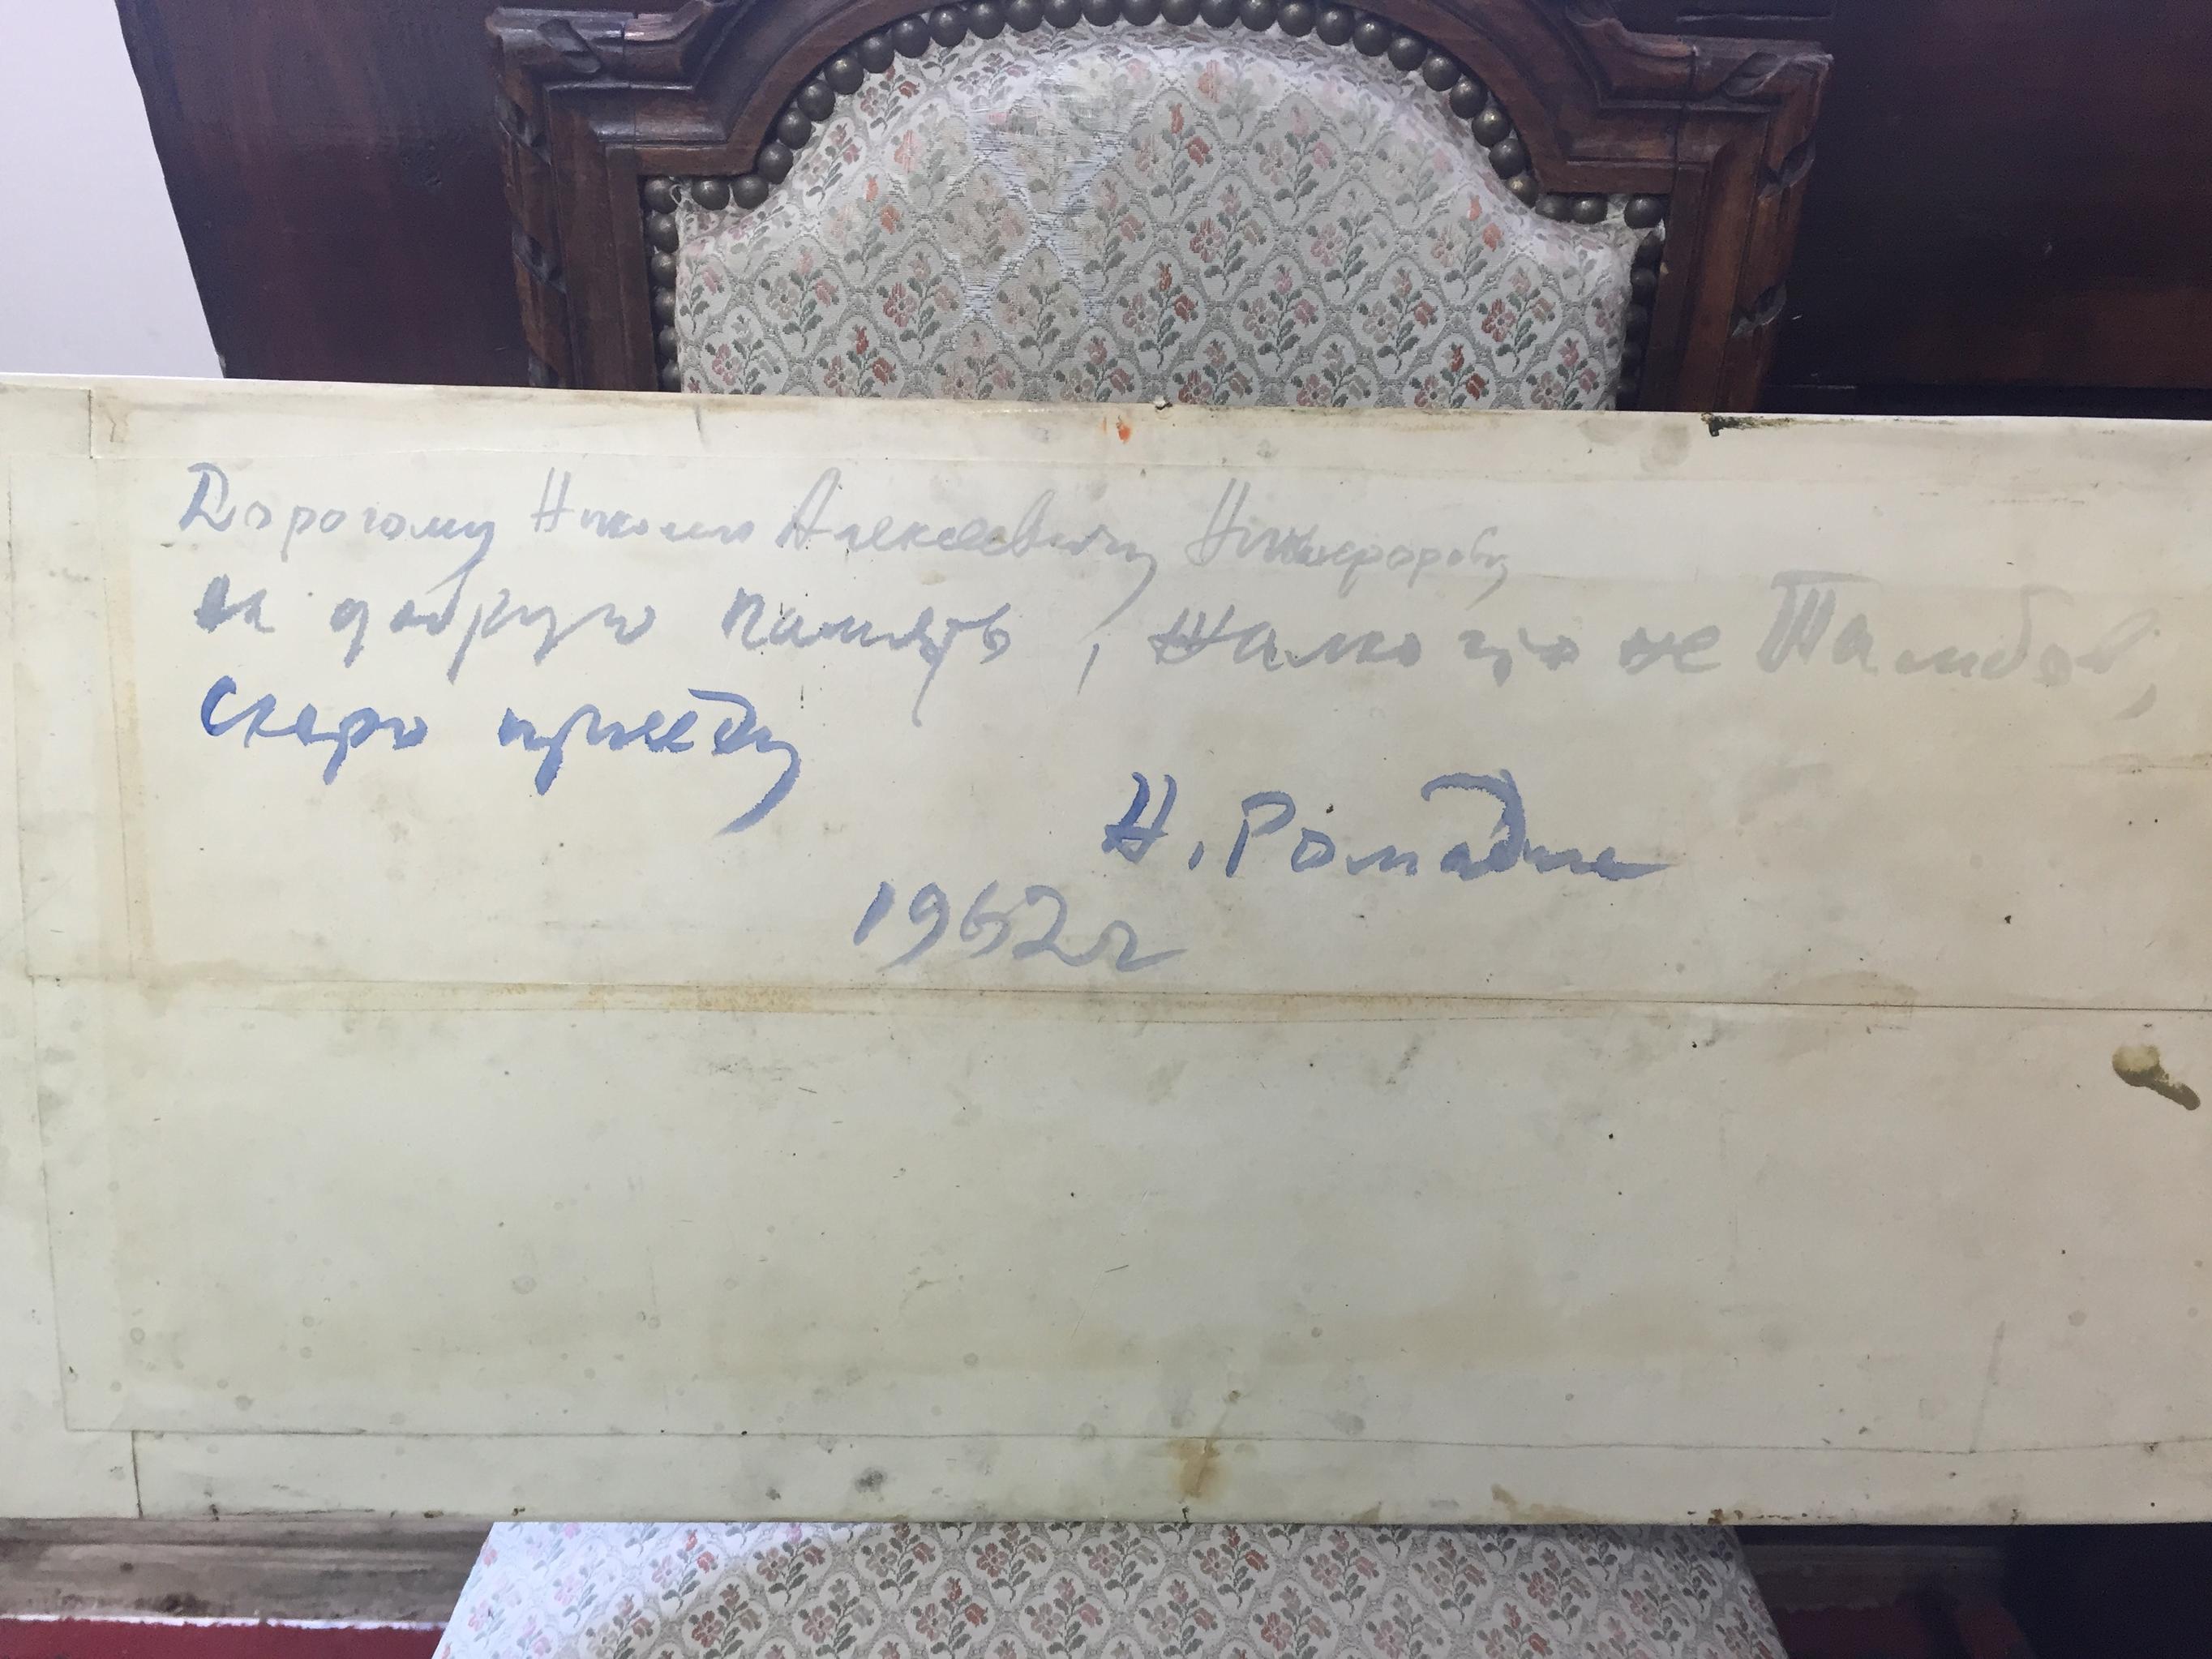 Дорогому Николаю Алексеевичу Никифорову
на добрую память, жалко что не Тамбов,
скоро приеду
Н. Ромадин
1962г